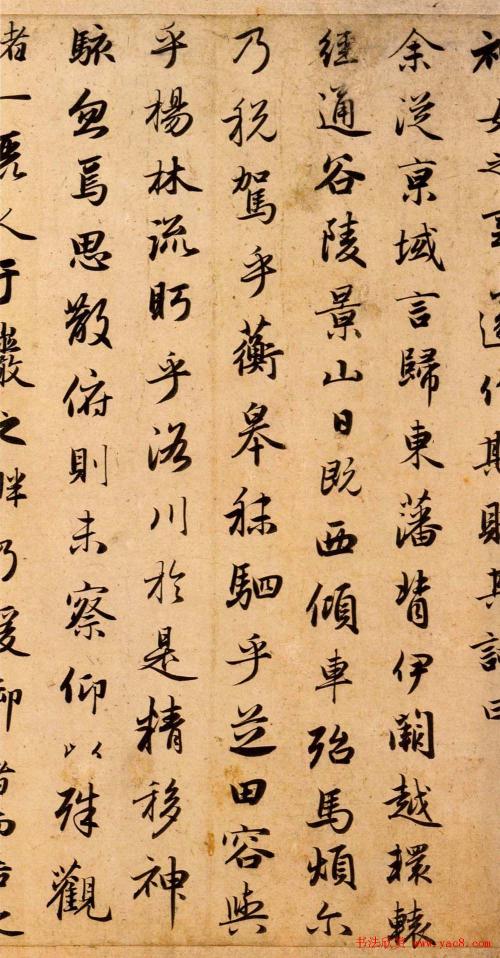 神女之事遂作斯賦其詞曰
余從京域言歸東藩背伊闕越轘轅
經通谷陵景山日既西傾車殆馬煩尔
乃稅駕乎蘅皋秣駟乎芝田容與
乎楊林流眄乎洛川於是精移神
駭忽焉思散俯則未察仰以殊觀
睹一麗人于巖之畔乃援御者而告之
书法欣赏 www.yac8.com